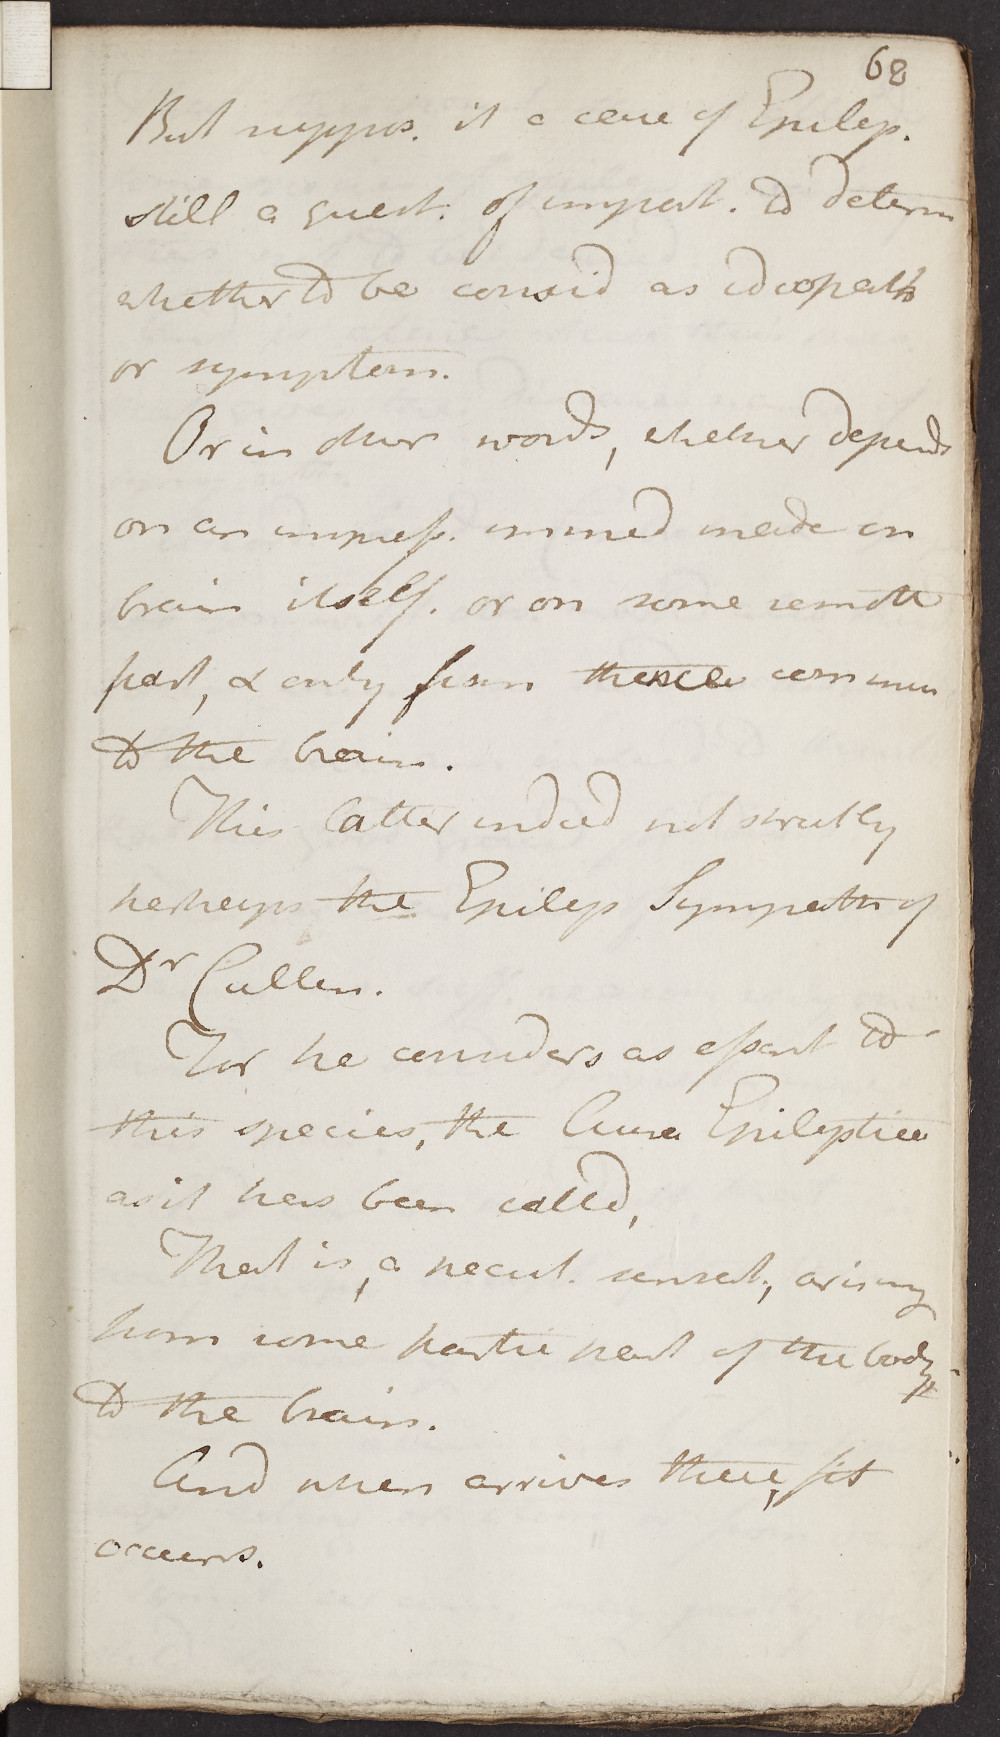 68
But suppos. it a case of Epilep.
still a quest. of import. to determ
whether to be consid as idiopath
or symptom.
Or in other words, whether depends
on an impress. immed made on
brain itself. or on some remote
part, & only from thence commun
to the brain.
This latter indeed not strictly
perhaps the Epilep Sympath of
Dr Cullen.
For he considers as essent to
this species, the Aura Epileptica
as it has been called,
That is, a pecul. sensat, arising
from some partic part of the body
to the brain.
And when arrives there, fit
occurs.